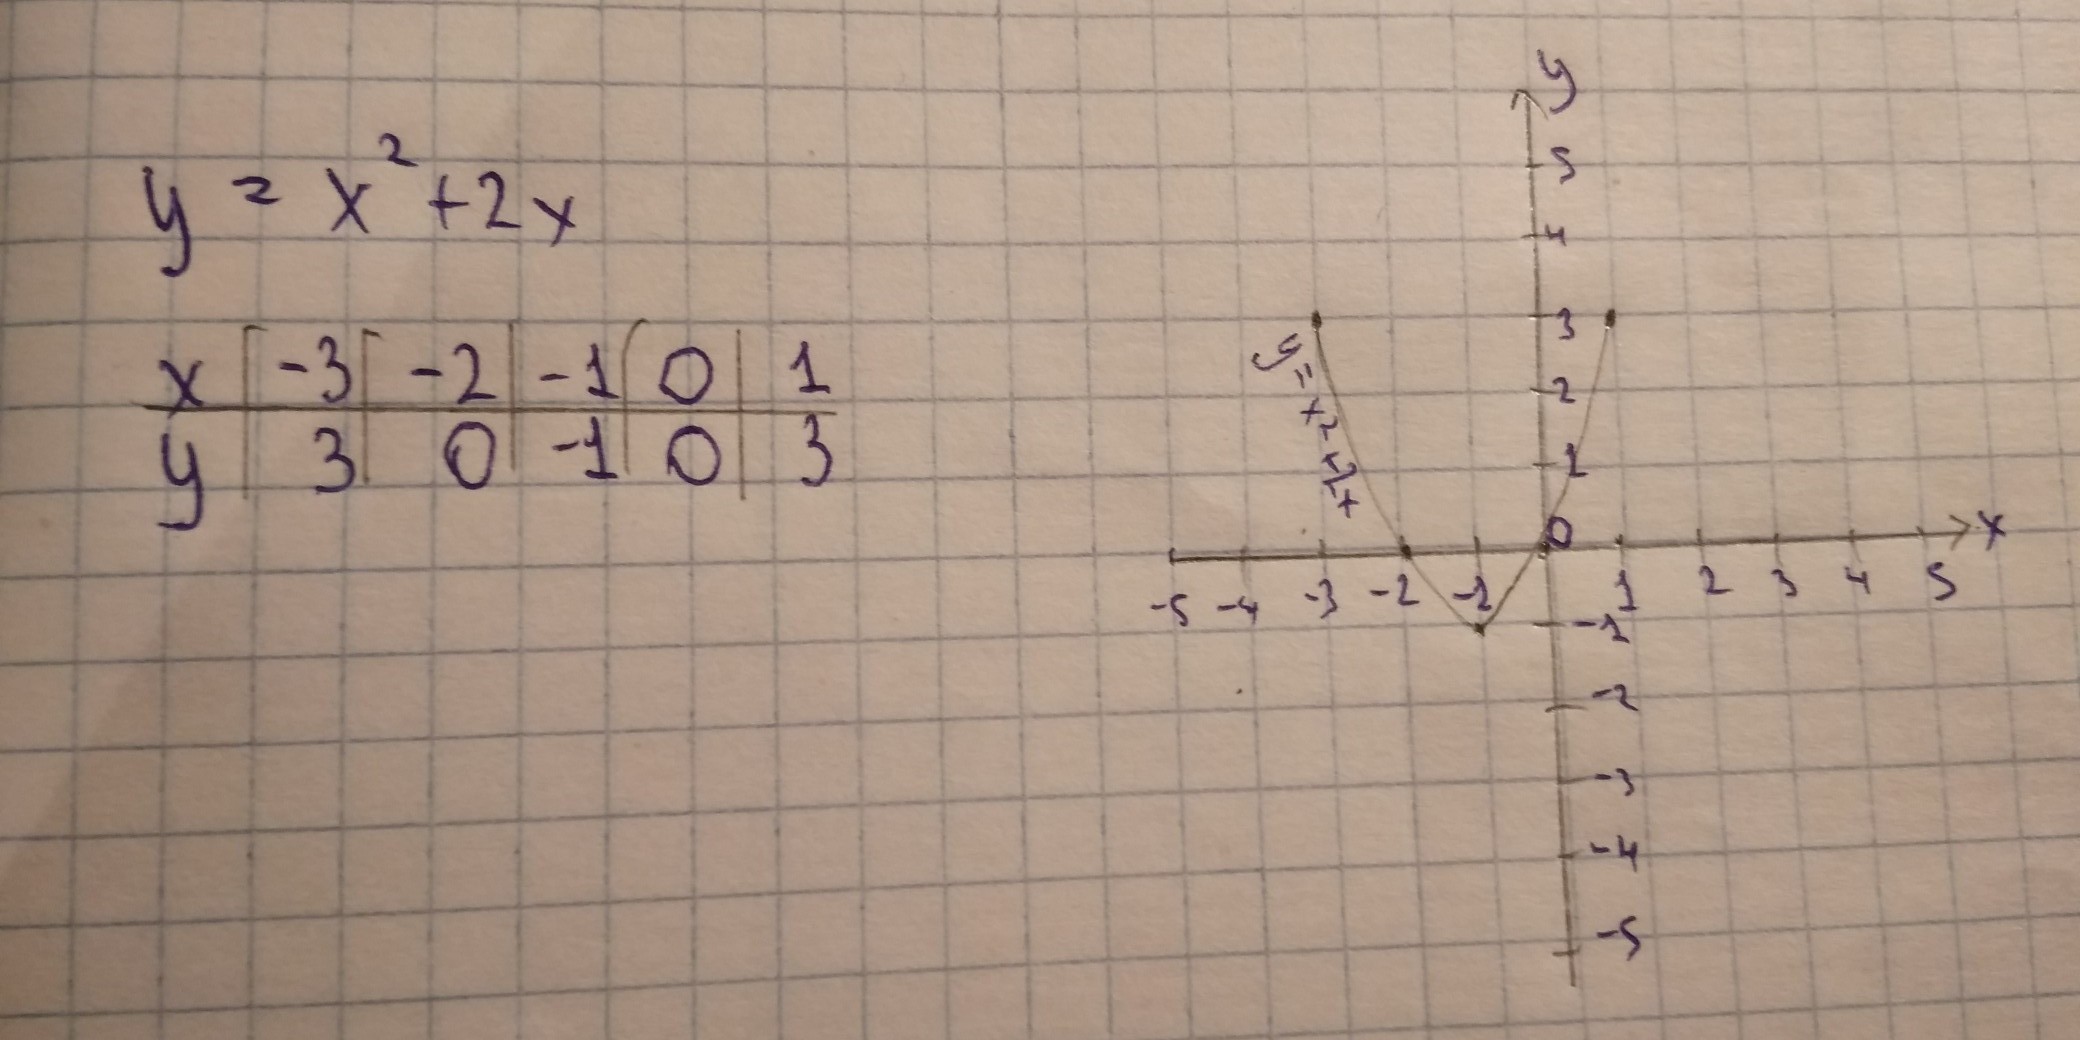 y = x² + 2x
x | -3 | -2 | -1 | 0 | 1
y | 3 | 0 | -1 | 0 | 3
y
5
4
3
2
1
0
x
-5 -4 -3 -2 -1 1 2 3 4 5
-1
-2
-3
-4
-5
y = x² + 2x